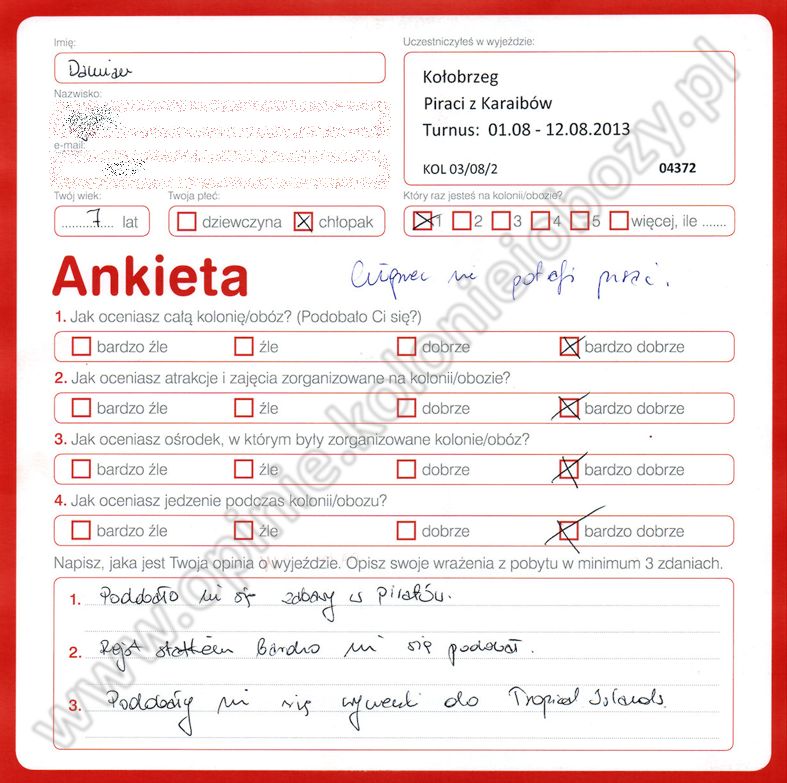 Imię:
Uczestniczyłeś w wyjeździe:
Damian
Kołobrzeg
Piraci z Karaibów
Turnus: 01.08 - 12.08.2013
KOL 03/08/2 04372
Nazwisko:
e-mail:
Twój wiek:
Twoja płeć:
Który raz jesteś na kolonii/obozie?
7 lat
dziewczyna chłopak
1 2 3 4 5 więcej, ile .......
Ankieta
nie potrafi pisać.
1. Jak oceniasz całą kolonię/obóz? (Podobało Ci się?)
bardzo źle źle dobrze bardzo dobrze
2. Jak oceniasz atrakcje i zajęcia zorganizowane na kolonii/obozie?
bardzo źle źle dobrze bardzo dobrze
3. Jak oceniasz ośrodek, w którym były zorganizowane kolonie/obóz?
bardzo źle źle dobrze bardzo dobrze
4. Jak oceniasz jedzenie podczas kolonii/obozu?
bardzo źle źle dobrze bardzo dobrze
Napisz, jaka jest Twoja opinia o wyjeździe. Opisz swoje wrażenia z pobytu w minimum 3 zdaniach.
1. Podobało mi się zabawy w piratów.
2. Rejs statkiem bardzo mi się podobał.
3. Podobały mi się do Tropical Islands.
www.opinie.kolonieiobozy.pl